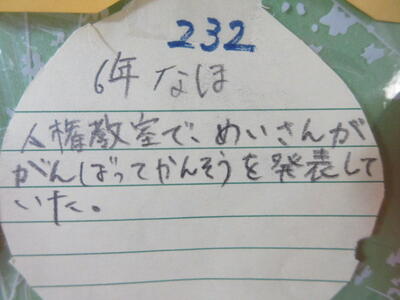 232
6年 なほ
人権教室で、めいさんが
がんばってかんそうを発表して
いた。